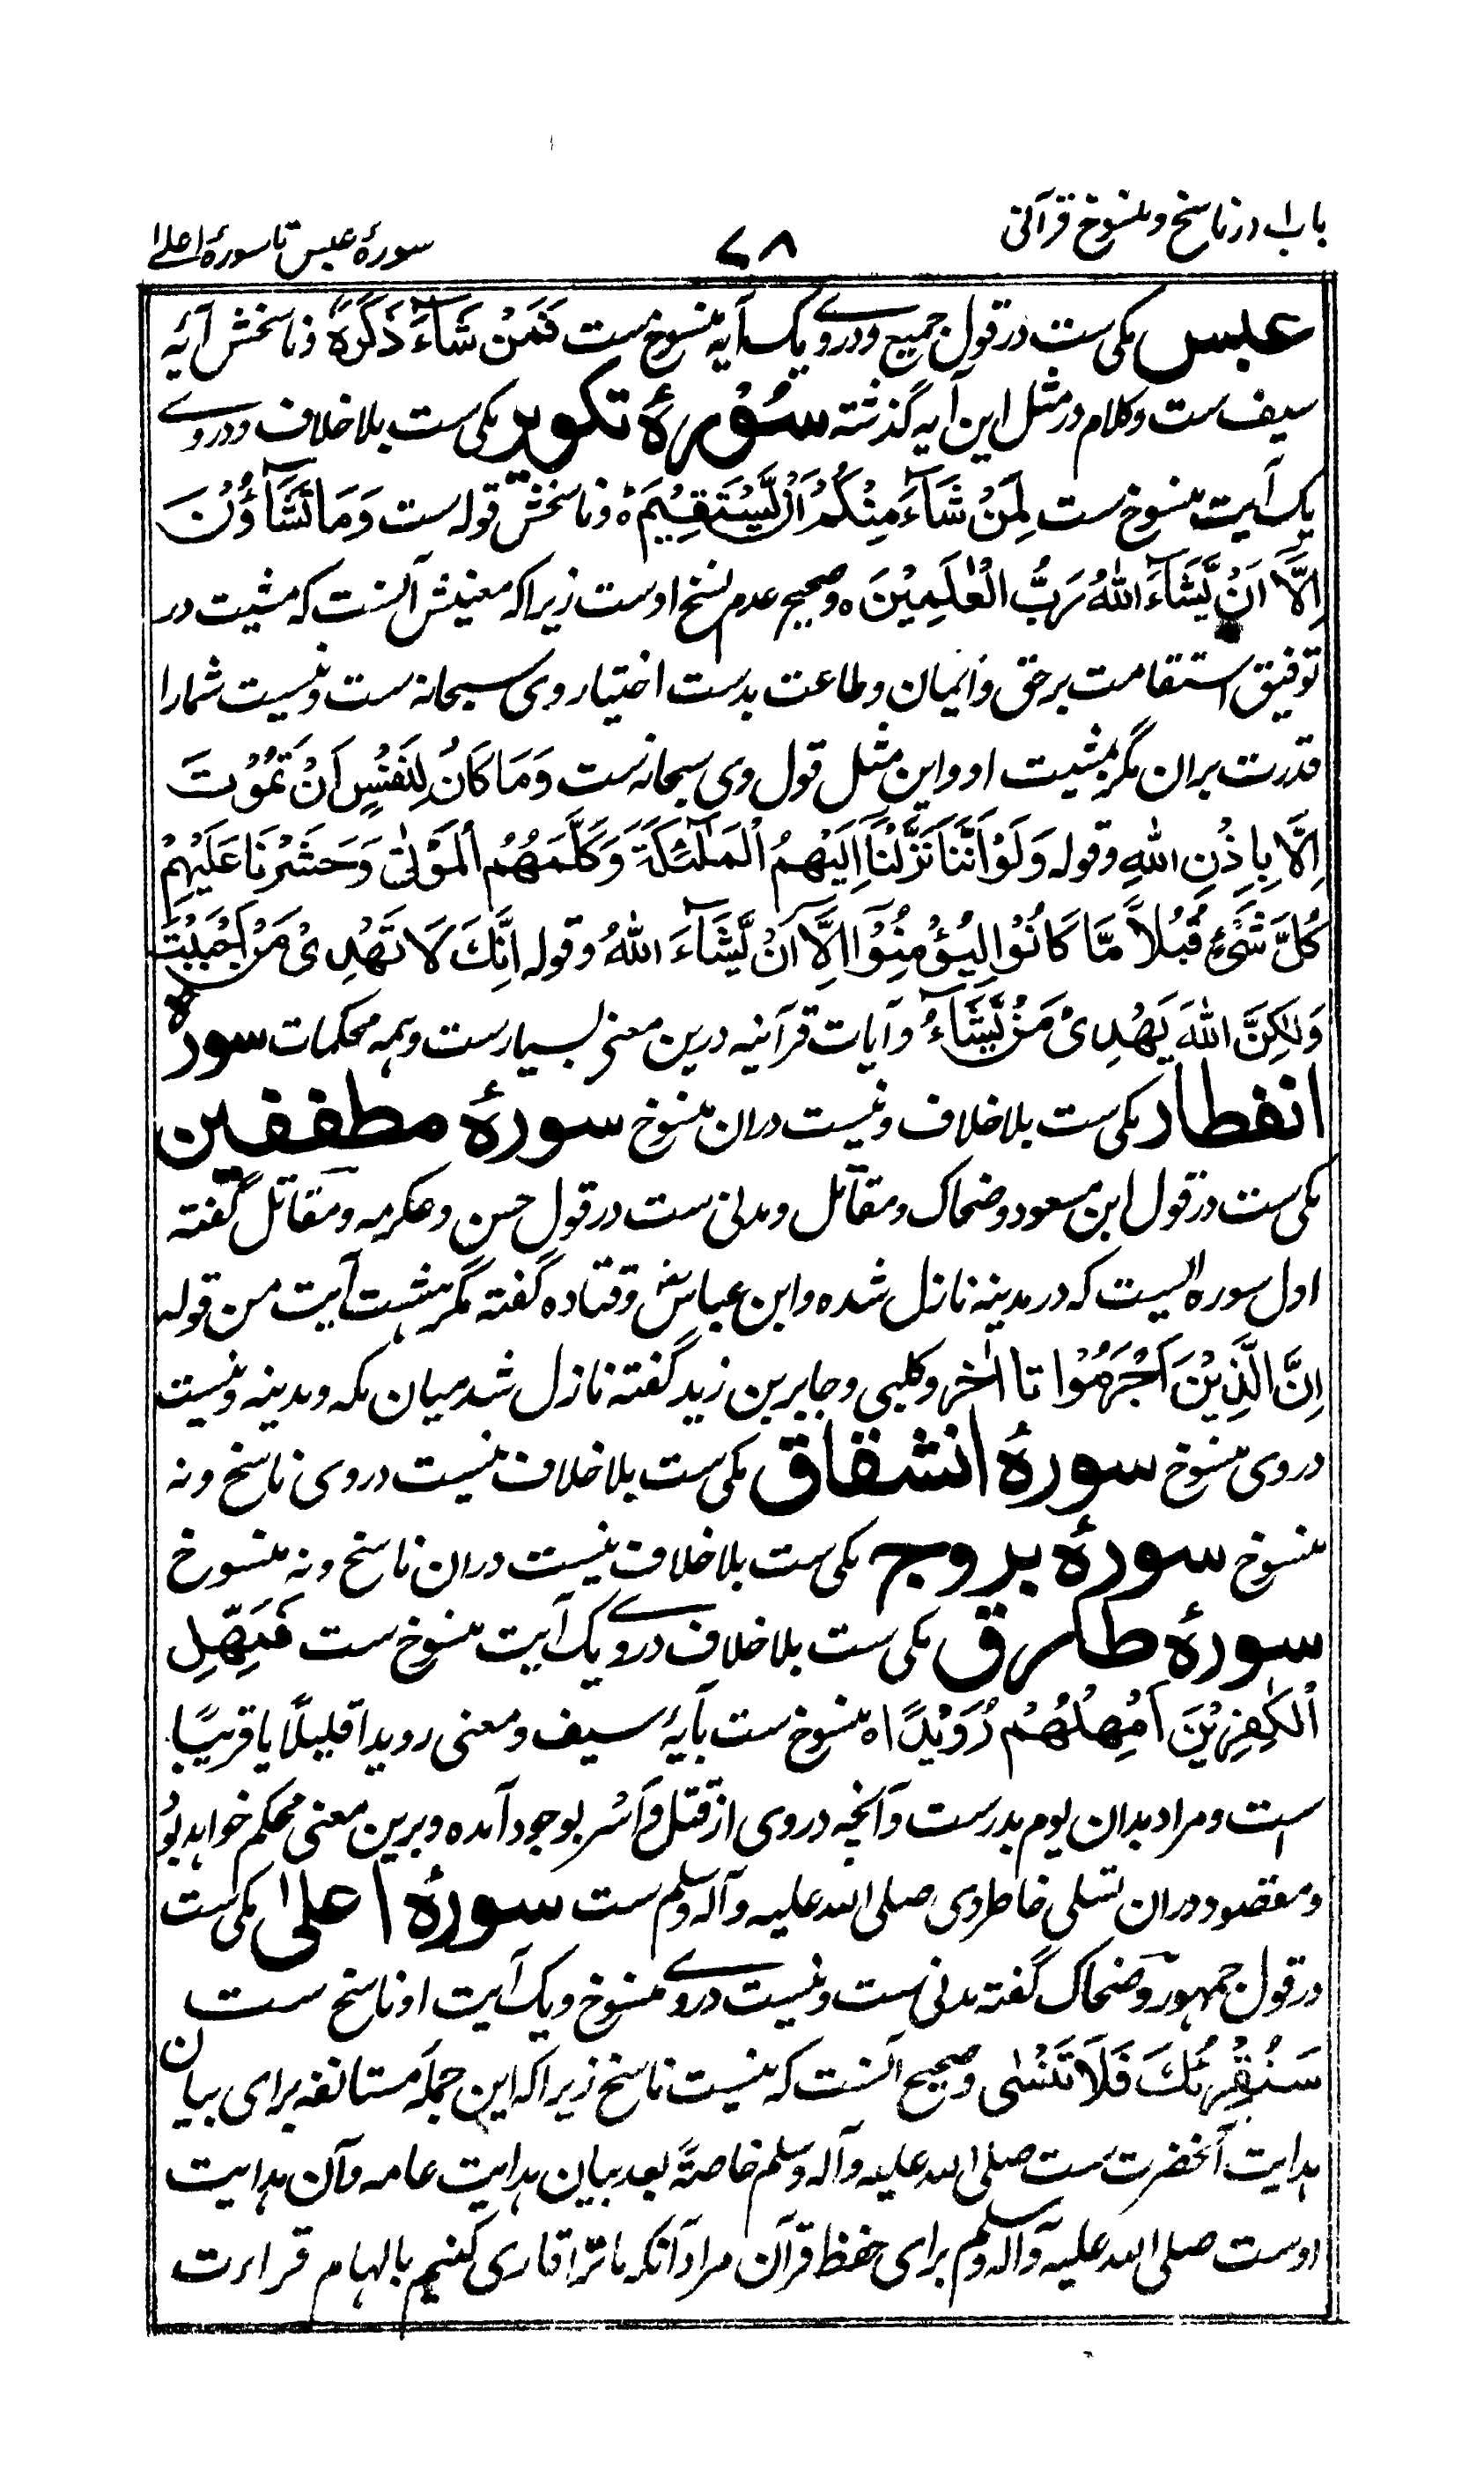 باب ۱ در ناسخ و منسوخ قرآنی
۷۸
سورۂ عبس تا سورۂ اعلے
عبس مکی ست در قول جمیع و در وے یک آیہ منسوخ ست فَمَنْ شَآءَ ذَكَرَهٗ و ناسخش آیۂ
سیف ست و کلام در مثل این آیہ گذشتہ سُوْرۂ تکویر مکی ست بلا خلاف و در وے
یک آیت منسوخ ست لِمَنْ شَآءَ مِنْكُمْ اَنْ یَّسْتَقِیْمَ ہ و ناسخش قولہ ست وَمَا تَشَآؤُنَ
اِلَّا اَنْ یَّشَآءَ اللّٰهُ رَبُّ الْعٰلَمِیْنَ ہ و صحیح عدم نسخ اوست زیرا کہ معنیش آنست کہ مشیت در
توفیق استقامت بر حق و ایمان و طاعت بدست اختیار وی سبحانہ ست و نیست شما را
قدرت بران مگر بمشیت او و این مثل قول وی سبحانہ ست وَمَا كَانَ لِنَفْسٍ اَنْ تَمُوْتَ
اِلَّا بِاِذْنِ اللّٰهِ و قولہ وَلَوْ اَنَّنَا نَزَّلْنَا اِلَیْهِمُ الْمَلٰٓئِكَةَ وَكَلَّمَهُمُ الْمَوْتٰی وَحَشَرْنَا عَلَیْهِمْ
كُلَّ شَیْءٍ قُبُلًا مَّا كَانُوْا لِیُؤْمِنُوْٓا اِلَّآ اَنْ یَّشَآءَ اللّٰهُ و قولہ اِنَّكَ لَا تَهْدِیْ مَنْ اَحْبَبْتَ
وَلٰكِنَّ اللّٰهَ یَهْدِیْ مَنْ یَّشَآءُ و آیات قرآنیہ درین معنی بسیار ست و ہمہ محکمات سورۂ
انفطار مکی ست بلا خلاف و نیست دران منسوخ سورۂ مطففین
مکی ست در قول ابن مسعود و ضحاک و مقاتل و مدنی ست در قول حسن و عکرمہ و مقاتل گفتہ
اول سورہ ایست کہ در مدینہ نازل شدہ و ابن عباسؓ و قتادہ گفتہ مگر ہشت آیت من قولہ
اِنَّ الَّذِیْنَ اَجْرَمُوْا تا اٰخر و کلبی و جابر بن زید گفتہ نازل شد میان مکہ و مدینہ و نیست
در وی منسوخ سورۂ انشقاق مکی ست بلا خلاف نیست در وی ناسخ و نہ
منسوخ سورۂ بروج مکی ست بلا خلاف نیست دران ناسخ و نہ منسوخ
سورۂ طارق مکی ست بلا خلاف در وے یک آیت منسوخ ست فَمَهِّلِ
الْكٰفِرِیْنَ اَمْهِلْهُمْ رُوَیْدًا ہ منسوخ ست بآیۂ سیف و معنی رویدا قلیلًا یا قریبًا
ست و مراد بدان یوم بدر ست و آنچہ در وی از قتل و اَسْر بوجود آمدہ و برین معنی محکم خواہد بُود
و مقصود دران تسلی خاطر وی صلی اللہ علیہ و آلہ وسلم ست سورۂ اعلیٰ مکی ست
در قول جمہور و ضحاک گفتہ مدنی ست و نیست در وے منسوخ و یک آیت او ناسخ ست
سَنُقْرِئُكَ فَلَا تَنْسٰی و صحیح آنست کہ نیست ناسخ زیرا کہ این جملہ مستانفہ برای بیان
ہدایت آنحضرت ست صلی اللہ علیہ و آلہ وسلم خاصۃً بعد بیان ہدایت عامہ و آن ہدایت
اوست صلی اللہ علیہ و آلہ وسلم برای حفظ قرآن مراد آنکہ ما ترا قاری کنیم بالہام قراءت